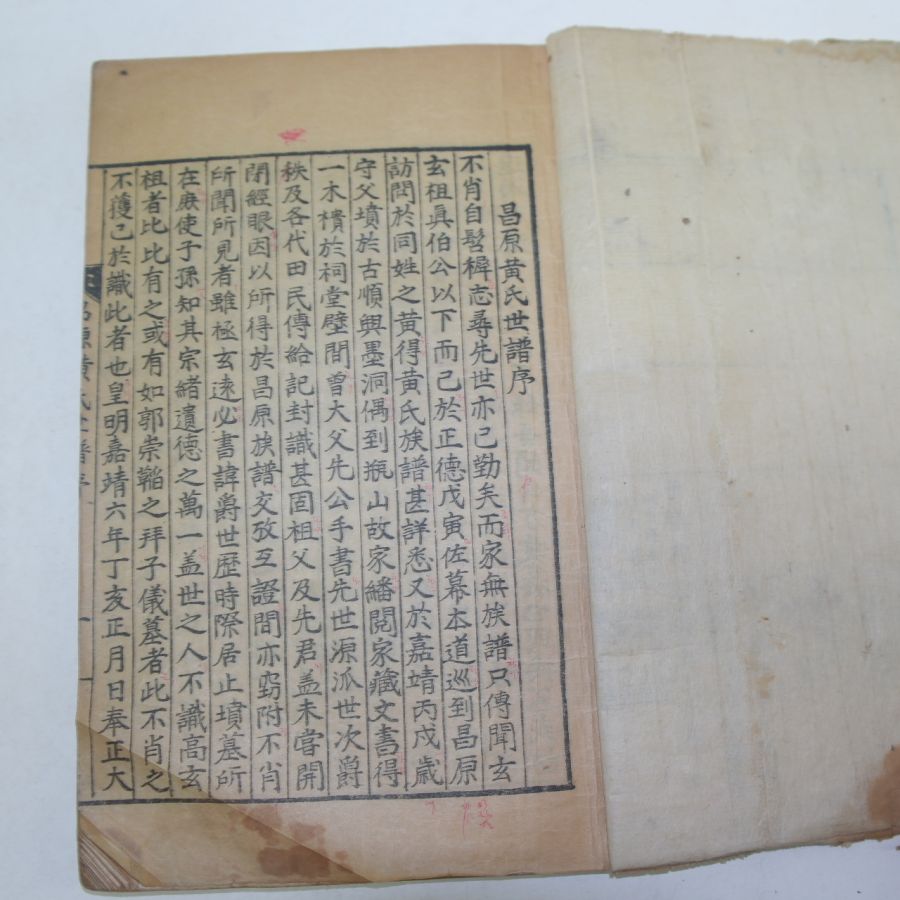 昌原黄氏世譜序
不肖自髫穉志尋先世亦已勤矣而家無族譜只傳聞玄
玄祖眞伯公以下而已於正德戊寅佐幕本道巡到昌原
訪問於同姓之黄得黄氏族譜甚詳悉又於嘉靖丙戌歲
守父墳於古順興墨洞偶到瓶山故家繙閱家藏文書得
一木樻於祠堂壁間曾大父先公手書先世源派世次爵
秩及各代田民傳給記封識甚固祖父及先君盖未嘗開
閉經眼因以所得於昌原族譜交攷互證間亦竊附不肖
所聞所見者雖極玄遠必書諱爵世歷時際居止墳墓所
在庶使子孫知其宗緖遺德之萬一盖世之人不識高玄
祖者比比有之或有如郭崇韜之拜子儀墓者此不肖之
不獲已於識此者也皇明嘉靖六年丁亥正月日奉正大
昌原黄氏世譜序 一